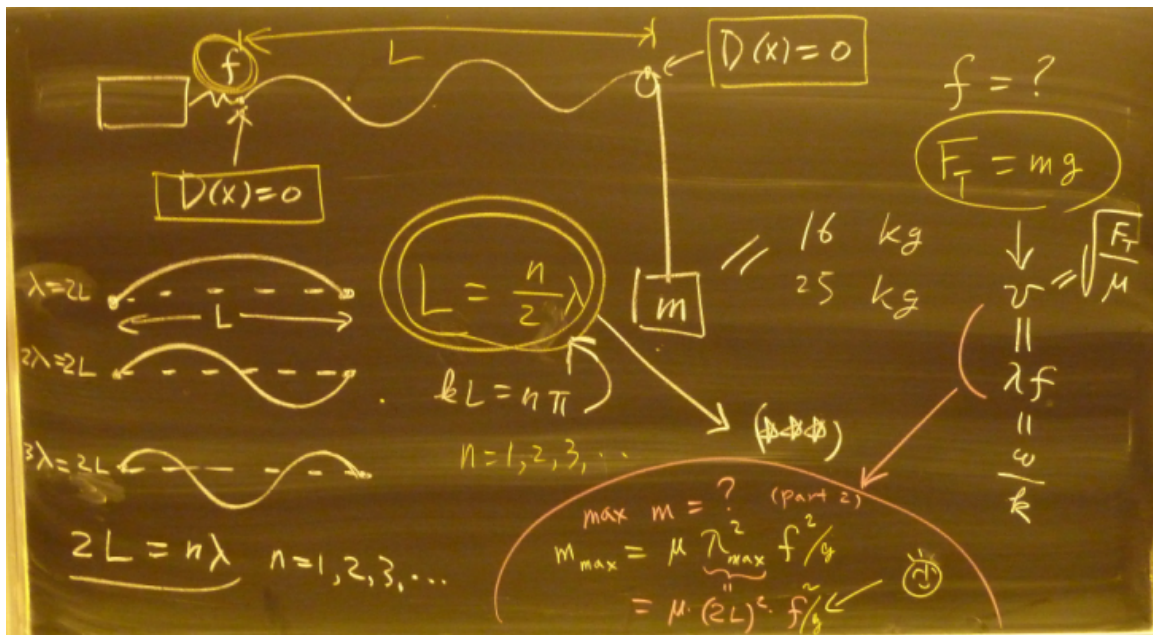 f
L
D(x)=0
D(x)=0
f = ?
F_T = mg
v = √(F_T/μ)
||
λf
||
ω/k
m
// 16 kg
25 kg
λ=2L
L
2λ=2L
3λ=2L
2L = nλ n=1,2,3,...
L = n/2 λ
kL = nπ
n=1,2,3,...
max m = ? (part 2)
m_max = μ λ²_max f²/g
= μ·(2L)²·f²/g